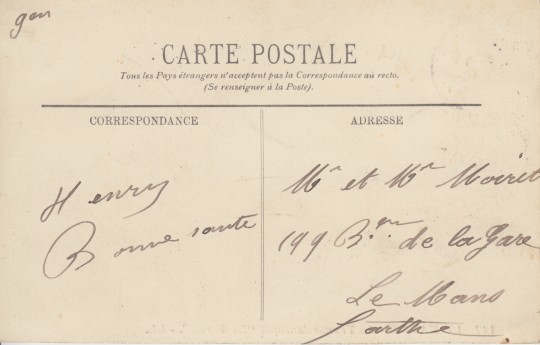 gen
CARTE POSTALE
Tous les Pays étrangers n'acceptent pas la Correspondance au recto.
(Se renseigner à la Poste).
CORRESPONDANCE
ADRESSE
Henry
Bonne sante
Mr et Mr Moiret
199 de la Gare
Le Mans
Sarthe